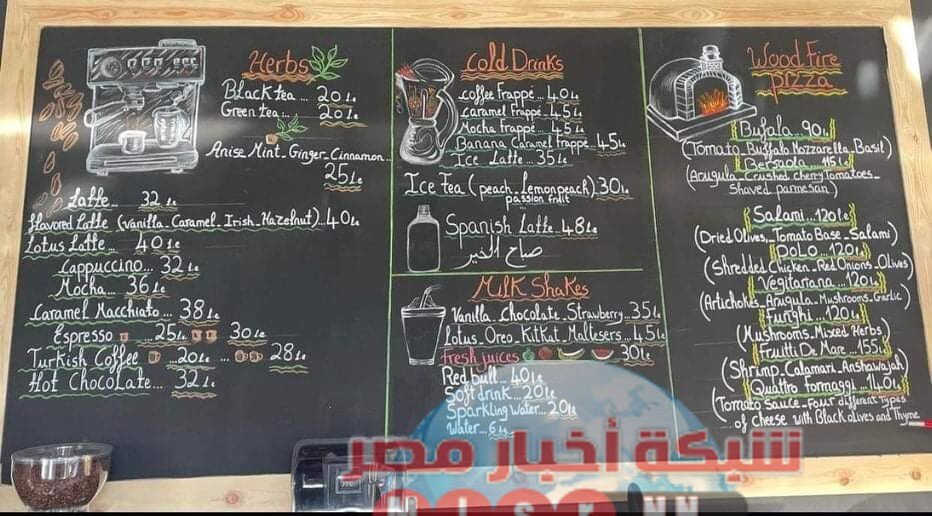 Herbs
Black tea ... 20 Le
Green tea ... 20 Le
Anise_Mint_Ginger_Cinnamon...
25 Le
Latte ... 32 Le
Flavored Latte (Vanilla_Caramel_Irish_Hazelnut)..40 Le
Lotus Latte ... 40 Le
Cappuccino... 32 Le
Mocha... 36 Le
Caramel Macchiato ... 38 Le
Espresso ... 25 Le ... 30 Le
Turkish Coffee ...20 Le ... 28 Le
Hot Chocolate... 32 Le
Cold Drinks
Coffee Frappé ...40 Le
Caramel Frappé ...45 Le
Mocha Frappé ...45 Le
Banana Caramel Frappé...45 Le
Ice Latte ...35 Le
Ice Tea (peach_Lemonpeach)30 Le
passion fruit
Spanish Latte..48 Le
صباح الخير
Milk Shakes
Vanilla_Chocolate_Strawberry..35 Le
Lotus_Oreo_Kitkat_Maltesers ..45 Le
Fresh juices 30 Le
Red bull ... 40 Le
Soft drink ... 20 Le
Sparkling Water...20 Le
Water...6 Le
Wood Fire
Pizza
Bufala ...90 Le
(Tomato_Buffalo Mozzarella_Basil)
115 Le
(Arugula_Crushed Cherry Tomatoes_
Shaved parmesan)
Salami ...120 Le
(Dried Olives_Tomato Base_Salami)
Polo ..120 Le
(Shredded Chicken_Red Onions_Olives)
Vegitariana ...120 Le
(Artichokes_Arugula_Mushrooms_Garlic)
Funghi ...120 Le
(Mushrooms_Mixed Herbs)
Fruitti De Mare ...155 Le
(Shrimp_Calamari_Anshawajah)
Quattro Formaggi ...140 Le
(Tomato Sauce_Four different Types
of Cheese with Black olives and Thyme
شبكة أخبار مصر
MISR NN